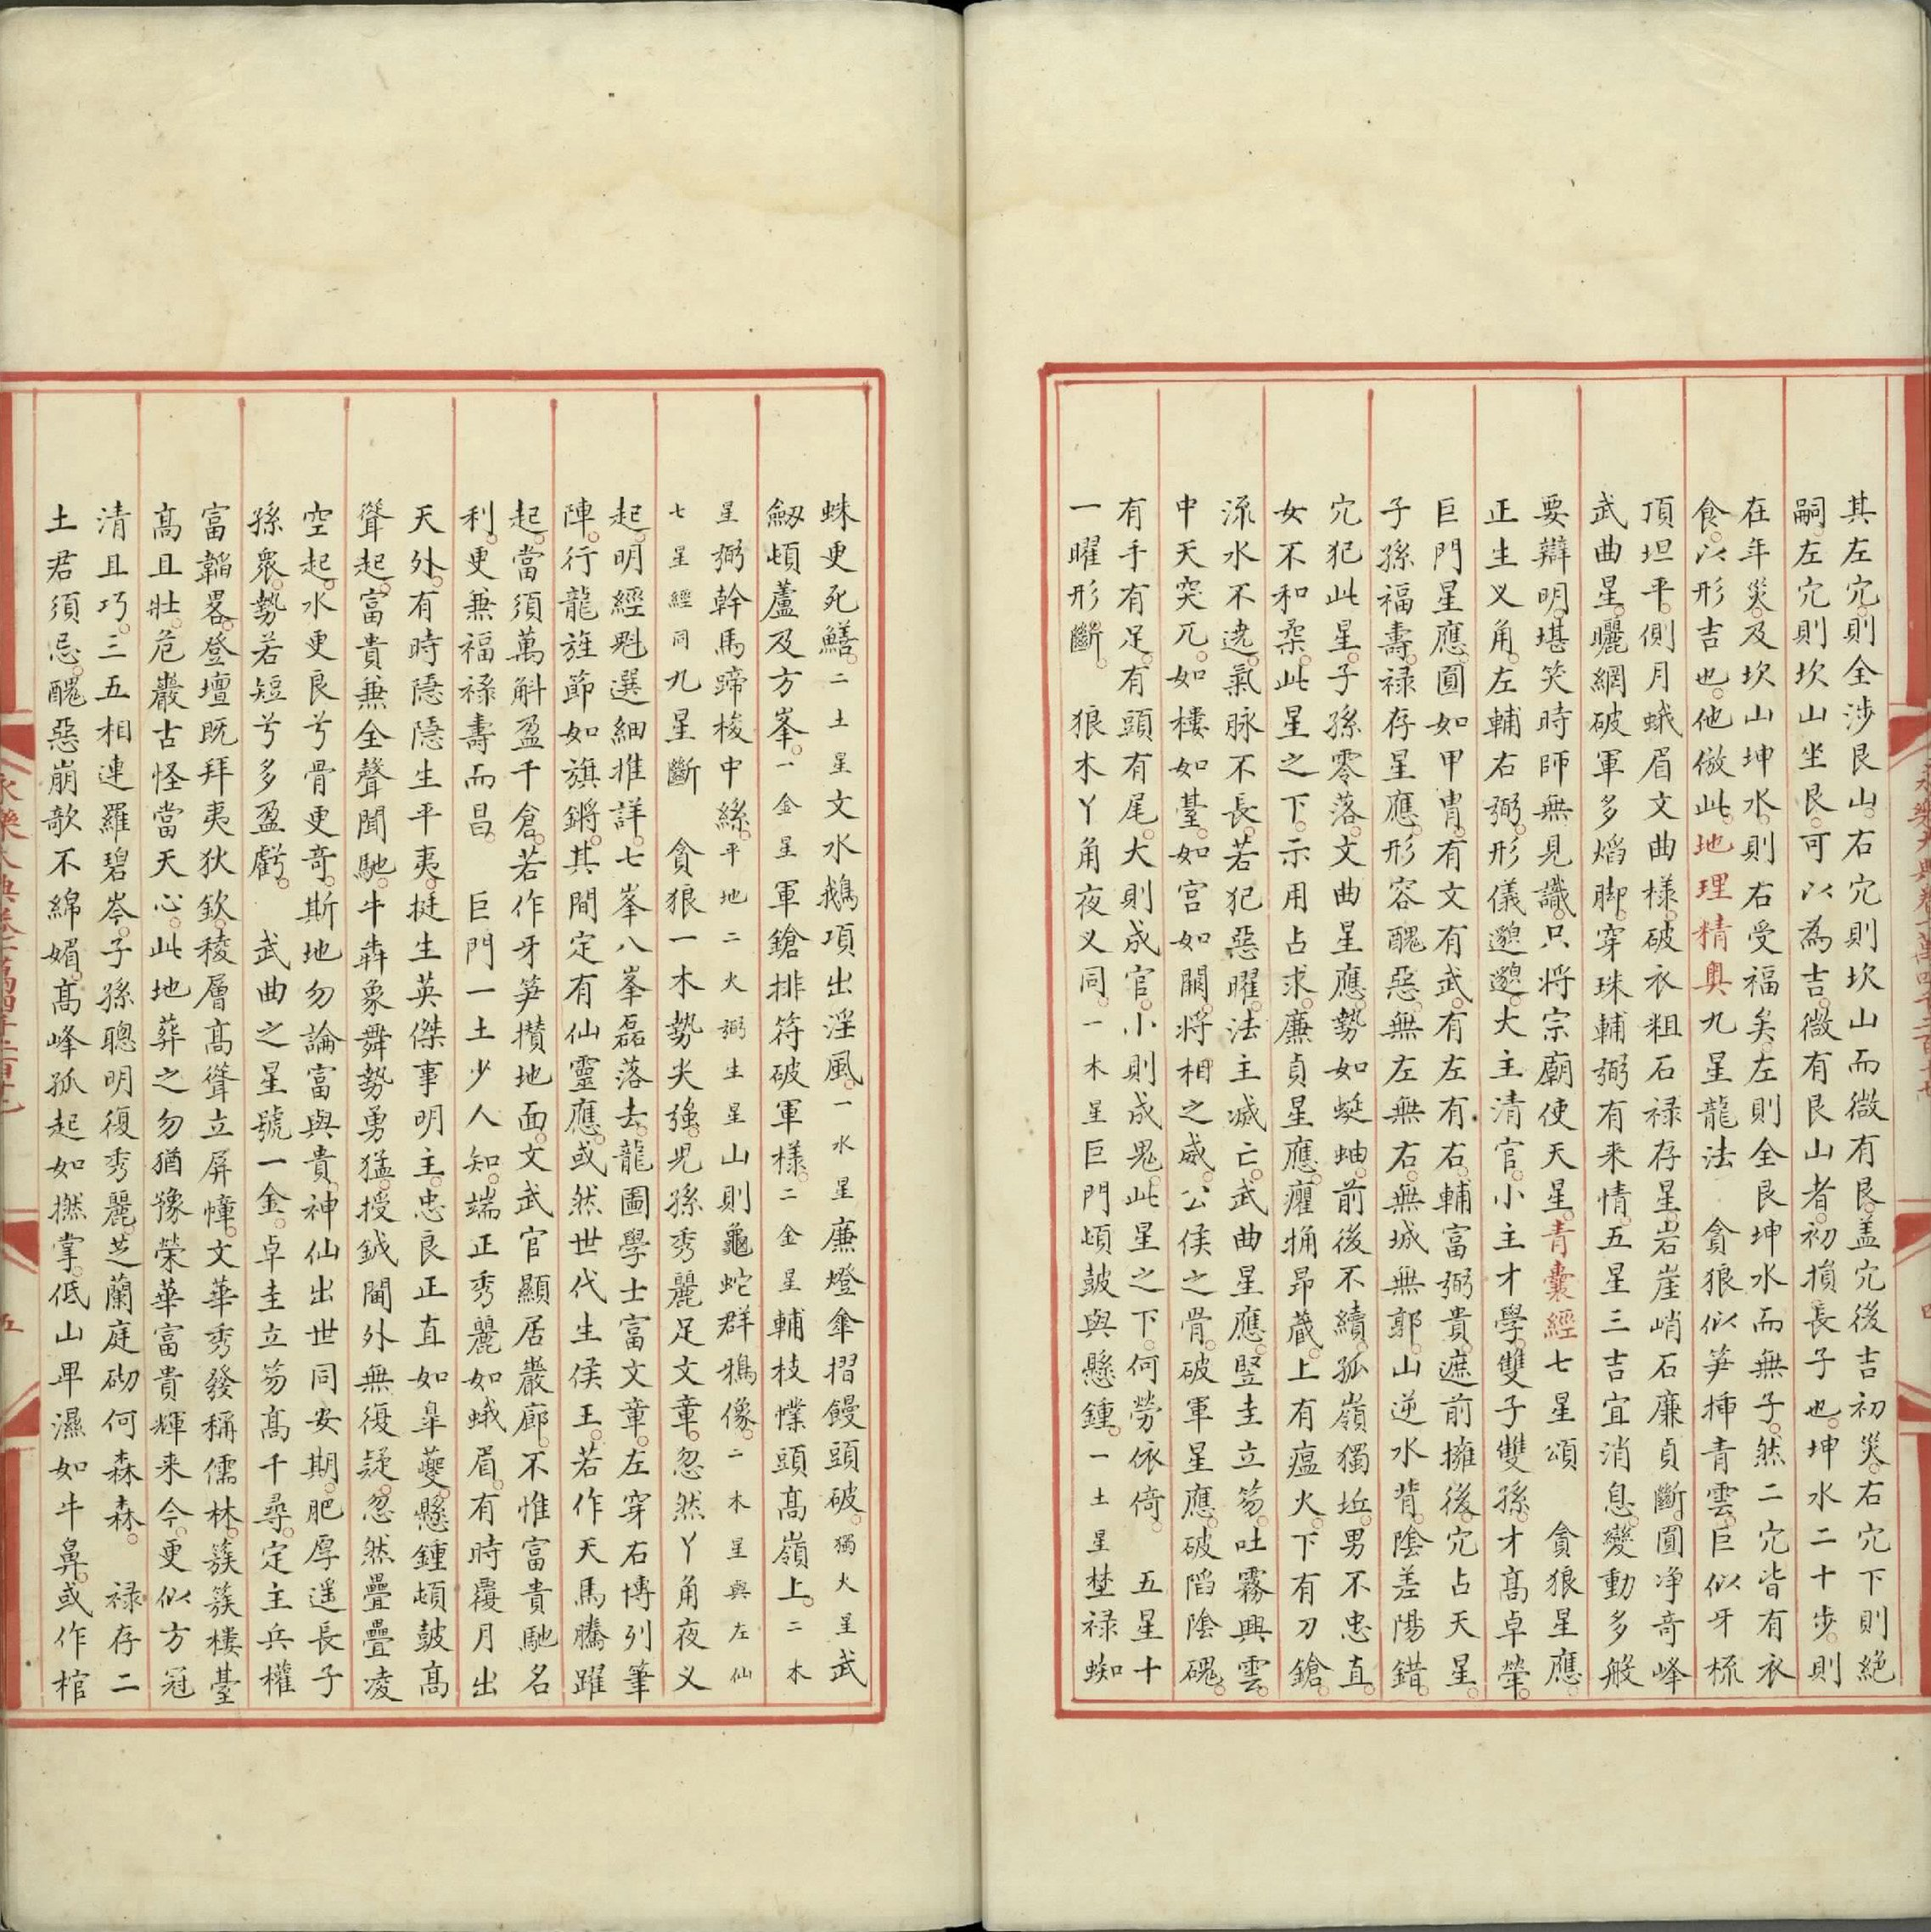 其左穴。則全涉艮山。右穴則坎山而微有艮。盖穴後吉初災。右穴下則絶
嗣。左穴則坎山坐艮。可以為吉。微有艮山者。初損長子也。坤水二十步。則
在年災。及坎山坤水。則右受福矣。左則全艮坤水而無子。然二穴皆有衣
食。以形吉也。他倣此。地理精奥九星龍法 貪狼似笋揷青雲。巨似牙梳
頂坦平。側月蛾眉文曲様。破衣粗石禄存星。岩崖峭石廉貞斷。圓净奇峰
武曲星。曬網破軍多焰脚。穿珠輔弼有来情。五星三吉宜消息。變動多般
要辯明。堪笑時師無見識。只将宗廟使天星。青囊經七星頌 貪狼星應。
正生义角。左輔右弼。形儀邈邈。大主清官。小主才學。雙子雙孫。才髙卓犖。
巨門星應。圓如甲冑。有文有武。有左有右。輔富弼貴。遮前擁後。穴占天星。
子孫福壽。禄存星應。形容醜惡。無左無右。無城無郭。山逆水背。陰差陽錯。
穴犯此星。子孫零落。文曲星應。勢如蜓蚰。前後不續。孤嶺獨坵。男不忠直。
女不和柔。此星之下。示用占求。廉貞星應。癯桷昂藏。上有瘟火。下有刀鎗。
流水不遶。氣脉不長。若犯惡曜。法主滅亡。武曲星應。竪圭立笏。吐霧興雲。
中天突兀。如樓如臺。如宫如闕。将相之威。公侯之骨。破軍星應。破䧟陰磈。
有手有足。有頭有尾。大則成官。小則成鬼。此星之下。何勞依倚。 五星十
一曜形斷。 狼木丫角夜义同。一木星巨門頓鼓與懸鍾。一土星埜禄蜘
蛛更死鱔。二土星文水鵝項出淫風。一水星廉燈傘摺饅頭破。獨火星武
劒頓蘆及方峯。一金星軍鎗排符破軍様。二金星輔枝幞頭髙嶺上。二木
星弼幹馬蹄梭中絲。平地二火弼生星山則龜蛇群鴉像。二木星與左仙
七星經同九星斷 貪狼一木勢尖強。児孫秀麗足文章。忽然丫角夜义
起。明經魁選細推詳。七峯八峯磊落去。龍圖學士富文章。左穿右博列筆
陣。行龍旌節如旗鏘。其間定有仙靈應。或然世代生侯王。若作天馬騰躍
起。當須萬斛盈千倉。若作牙笋攢地面。文武官顯居巖廊。不惟富貴馳名
利。更兼福禄壽而昌。 巨門一土少人知。端正秀麗如蛾眉。有時覆月出
天外。有時隱隱生平夷。挺生英傑事明主。忠良正直如皐夔。懸鍾頓鼓髙
聳起。富貴兼全聲聞馳。牛犇象舞勢勇猛。授鉞閫外無復疑。忽然疊疊凌
空起。水更良兮骨更奇。斯地勿論富與貴。神仙出世同安期。肥厚遥長子
孫衆。勢若短兮多盈虧。 武曲之星號一金。卓圭立笏髙千尋。定主兵權
富韜畧。登壇既拜夷狄欽。稜層髙聳立屏幛。文華秀發稱儒林。簇簇樓臺
髙且壯。危巖古怪當天心。此地葬之勿猶豫。榮華富貴輝来今。更似方冠
清且巧。三五相連羅碧岑。子孫聰明復秀麗。芝蘭庭砌何森森。 禄存二
土君須忌。醜惡崩欹不綿媚。髙峰孤起如撚掌。低山畢濕如牛鼻。或作棺